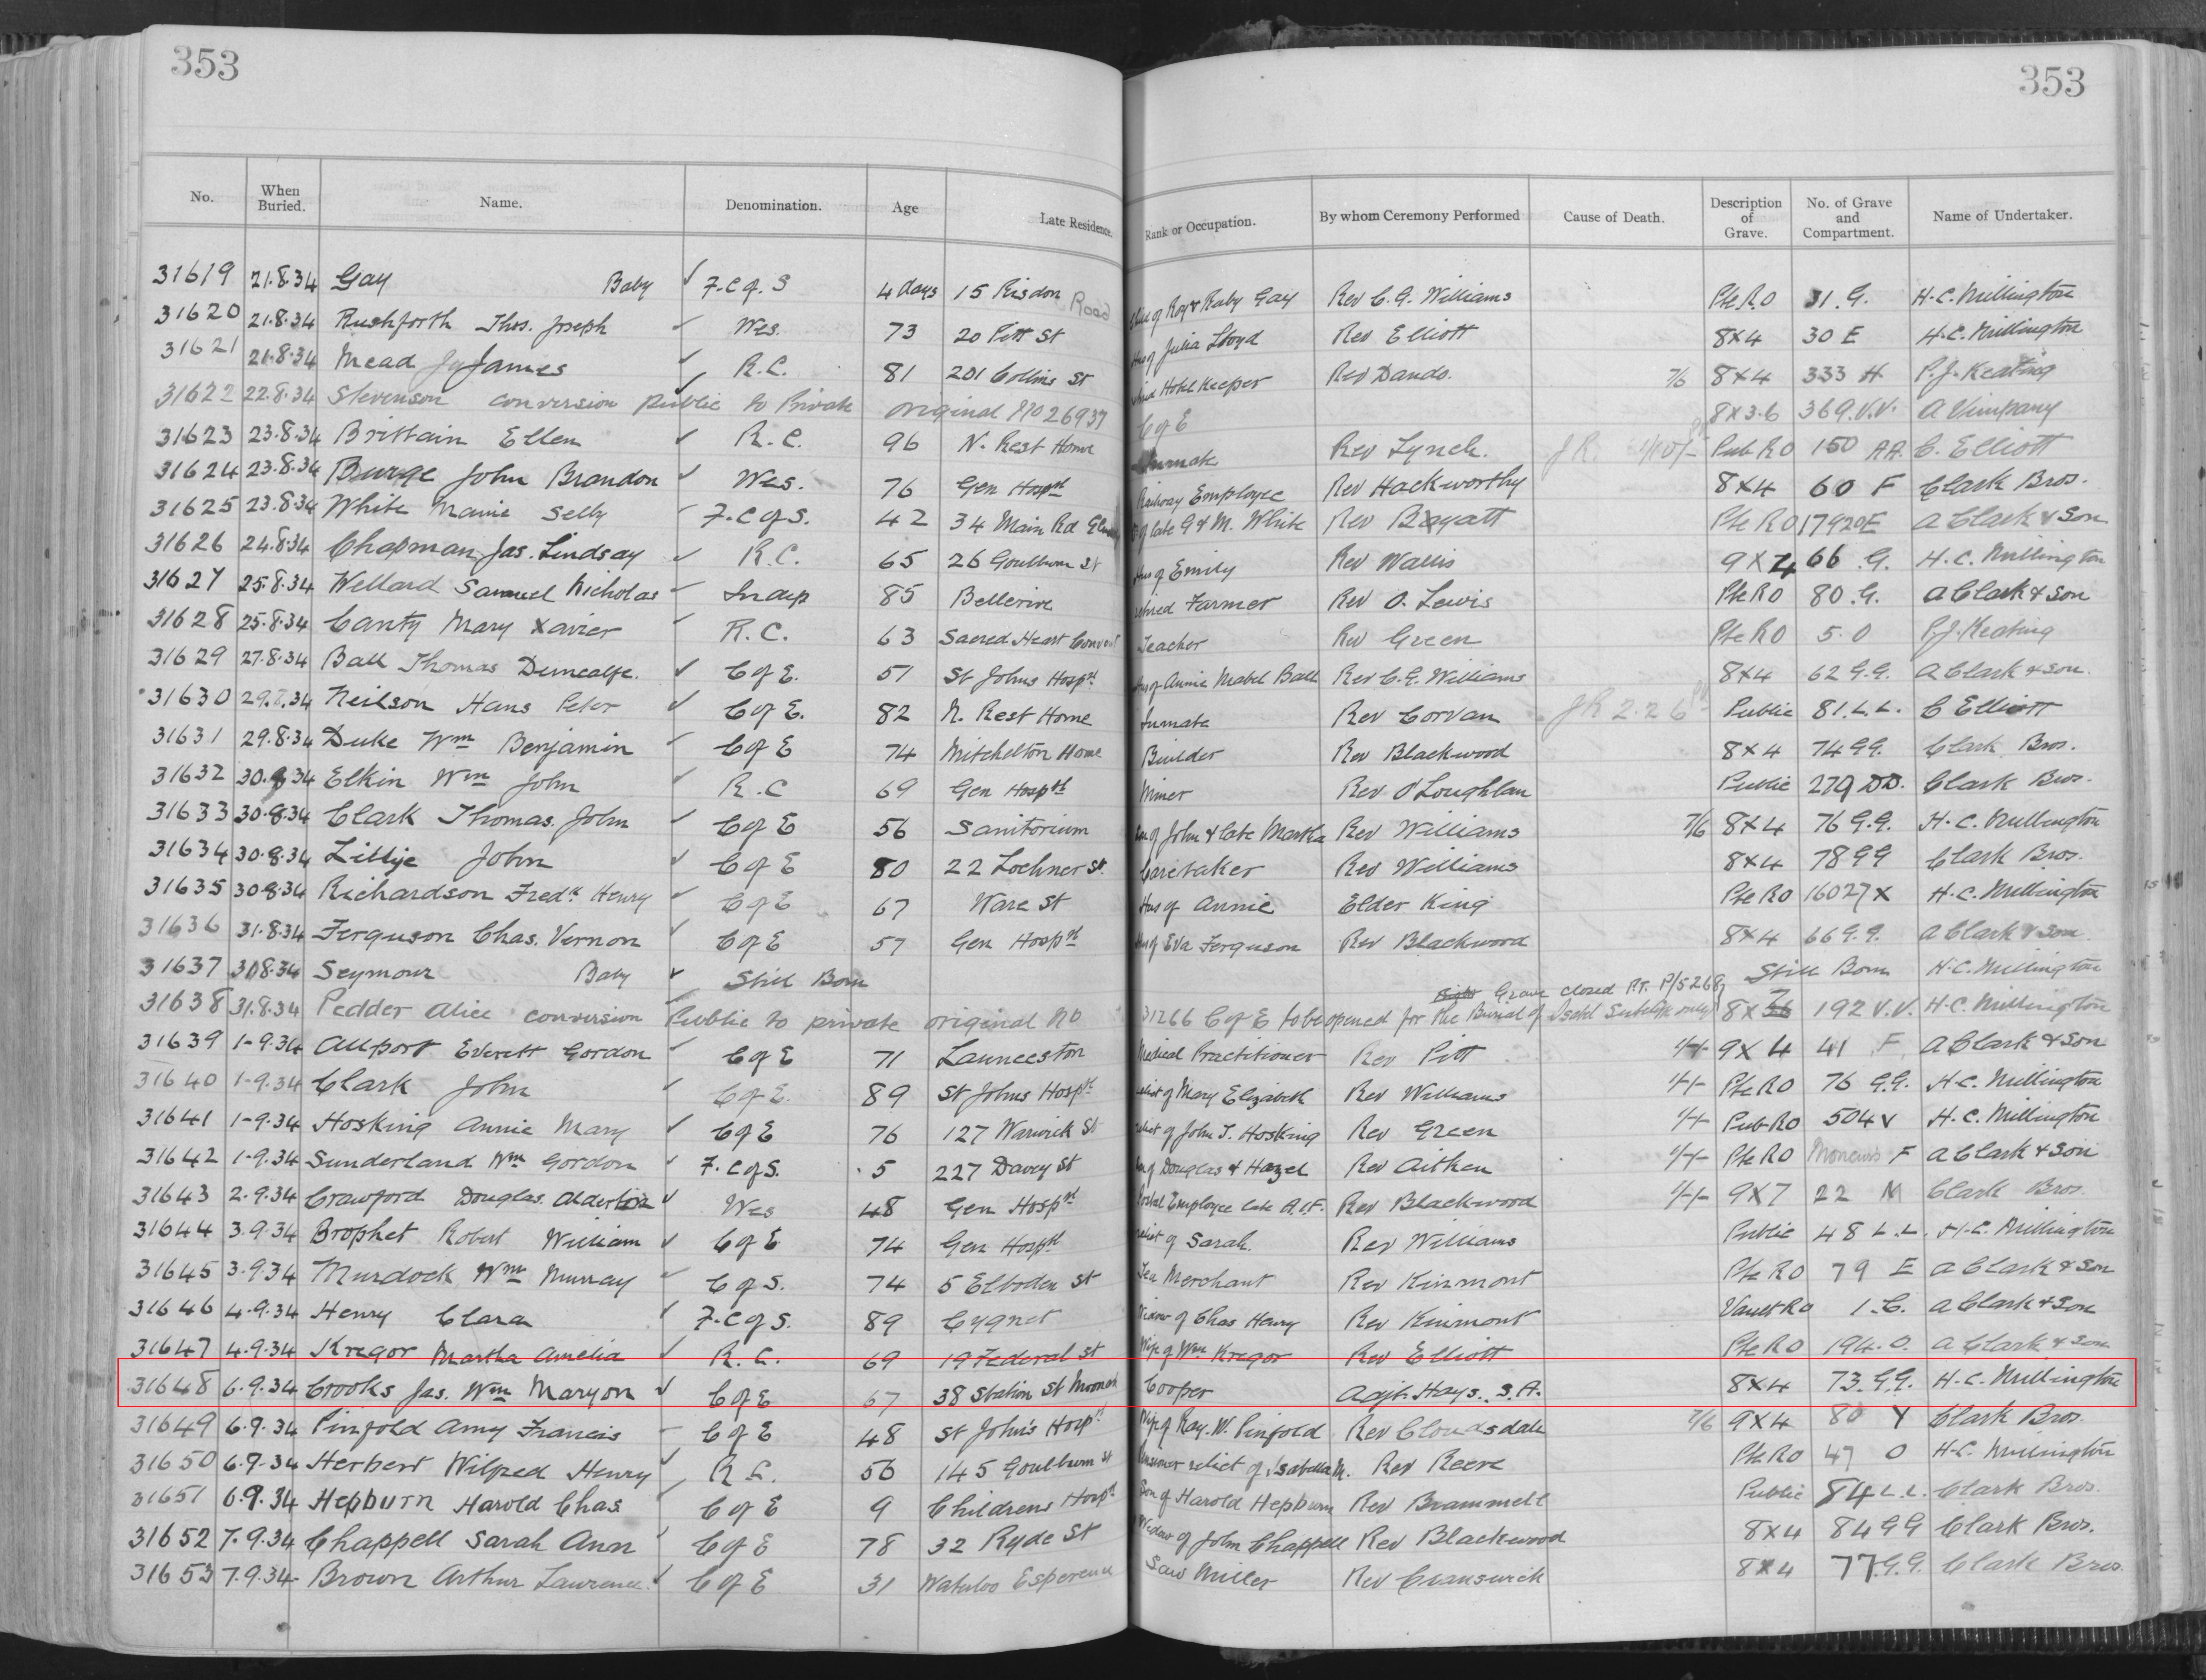 353 353
No. When Buried. Name. Denomination. Age Late Residence. Rank or Occupation. By whom Ceremony Performed Cause of Death. Description of Grave. No. of Grave and Compartment. Name of Undertaker.
31619 21.8.34 Gay Baby ✓ F.C of. S 4 days 15 Risdon Road of Roy & Ruby Gay Rev C. G. Williams Pte R.O 31. G. H.C. Millington
31620 21.8.34 Rushforth Thos. Joseph ✓ Wes. 73 20 Pitt St Hus of Julia Lloyd Rev Elliott 8x4 30 E H.C. Millington
31621 21.8.34 Mead James ✓ R.C. 81 201 Collins St Hotel Keeper Rev Dando. 7/6 8x4 333 H P.J. Keating
31622 22.8.34 Stevenson conversion Public to Private original No 26937 C of E 8x3.6 369.V.V. A Vimpany
31623 23.8.34 Brittain Ellen ✓ R.C. 96 N. Rest Home Inmate Rev Lynch. Pub RO 150 AA. C. Elliott
31624 23.8.34 Burge John Brandon ✓ Wes. 76 Gen Hospt Railway Employee Rev Hackworthy 8x4 60 F Clark Bros.
31625 23.8.34 White Mamie Selby F.C of S. 42 34 Main Rd of late G & M. White Rev Bagatt Pte RO 179 20E A Clark & Son
31626 24.8.34 Chapman Jas. Lindsay ✓ R.C. 65 26 Goulburn St Hus of Emily Rev Wallis 9x4 66 .G. H.C. Millington
31627 25.8.34 Wellard Samuel Nicholas Indep 85 Bellerive retired Farmer Rev O. Lewis Pte RO 80 .G. A Clark & Son
31628 25.8.34 Canty Mary Xavier R.C. 63 Sacred Heart Convent Teacher Rev Green Pte RO 5. O P.J. Keating
31629 27.8.34 Ball Thomas Duncalfe. ✓ C of E. 51 St Johns Hospt Hus of Annie Mabel Ball Rev C.G. Williams 8x4 62 G.G. A Clark & Son.
31630 29.8.34 Neilson Hans Peter ✓ C of E. 82 N. Rest Home Inmate Rev Corvan JR 2.2 6 Public 81. L.L. C Elliott
31631 29.8.34 Duke Wm Benjamin ✓ C of E 74 Mitchelton Home Builder Rev Blackwood 8x4 74 G.G. Clark Bros.
31632 30.8.34 Elkin Wm John R.C 69 Gen Hospt Miner Rev O'Loughlan Public 279 DD. Clark Bros.
31633 30.8.34 Clark Thomas. John C of E 56 Sanitorium Son of John & late Martha Rev Williams 7/6 8x4 76 G.G. H.C. Millington
31634 30.8.34 Lillije John ✓ C of E 80 22 Lochner St. Caretaker Rev Williams 8x4 78 GG Clark Bros.
31635 30.8.34 Richardson Fredk Henry C of E 67 Ware St Hus of Annie Elder King Pte RO 16027 X H.C. Millington
31636 31.8.34 Ferguson Chas. Vernon C of E 57 Gen Hospt Hus of Eva Ferguson Rev Blackwood 8x4 66 G.G. A Clark & Son
31637 30.8.34 Seymour Baby ✓ Still Born Still Born H.C. Millington
Grave closed P/5268
31638 31.8.34 Pedder Alice conversion Public to private original No 31266 C of E to be opened for the Burial of only 192 V.V. H.C. Millington
31639 1-9.34 Allport Everett Gordon C of E 71 Launceston Medical Practitioner Rev Pitt 9x4 41 F A Clark & Son
31640 1-9.34 Clark John C of E. 89 St Johns Hospt relict of Mary Elizabeth Rev Williams Pte RO 76 G.G. H.C. Millington
31641 1-9.34 Hosking Annie Mary ✓ C of E 76 127 Warwick St relict of John T. Hosking Rev Green Pub RO 504 V H.C. Millington
31642 1-9.34 Sunderland Wm Gordon F. C of S. 5 227 Davey St Son of Douglas & Hazel Rev Aitken Pte RO F A Clark & Son
31643 2.9.34 Crawford Douglas. Alderton ✓ Wes 48 Gen Hospt Postal Employee late A.I.F. Rev Blackwood 9x7 22 M Clark Bros.
31644 3.9.34 Brophet Robert William ✓ C of E 74 Gen Hospt relict of Sarah. Rev Williams Public 48 L.L. H.C. Millington
31645 3.9.34 Murdock Wm Murray C of S. 74 5 Elboden St Tea Merchant Rev Kinmont Pte RO 79 E A Clark & Son
31646 4.9.34 Henry Clara F.C of S. 89 Cygnet Widow of Chas Henry Rev Kinmont Vault RO 1.C. A Clark & Son
31647 4.9.34 Kregor Martha Amelia R.C. 69 19 Federal St Wife of Wm Kregor Rev Elliott Pte RO 194.O. A Clark & Son
31648 6.9.34 Crooks Jas. Wm Maryon ✓ C of E 67 38 Station St Moonah Cooper Adjt. Hays. S.A. 8x4 73 G.G. H.C. Millington
31649 6.9.34 Pinfold Amy Francis C of E 48 St John's Hospt Wife of Ray. W. Pinfold Rev Cloudsdale 7/6 9x4 80 Y Clark Bros.
31650 6.9.34 Herbert Wilfred Henry R.C. 56 145 Goulburn St Pensioner relict of Isabella M. Rev Reeve Pte RO 47 O H.C. Millington
31651 6.9.34 Hepburn Harold Chas C of E 9 Childrens Hospt Son of Harold Hepburn Rev Brammell Public 84 L.L. Clark Bros.
31652 7.9.34 Chappell Sarah Ann C of E 78 32 Ryde St Widow of John Chappell Rev Blackwood 8x4 84 GG Clark Bros.
31653 7.9.34 Brown Arthur Lawrence ✓ C of E 31 Waterloo Esperence Saw Miller Rev Cranswick 8x4 77.G.G. Clark Bros.